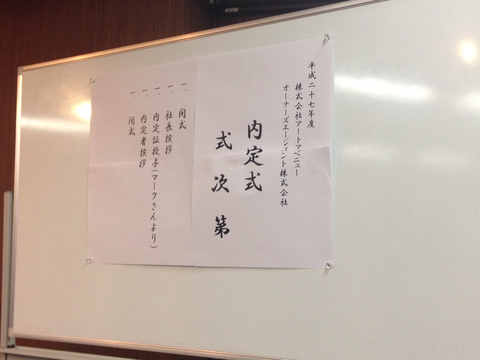 平成二十七年度
株式会社アートアベニュー
オーナーズエージェント株式会社
内定式
式次第
一、開式
一、社長挨拶
一、内定証授与(マークさんより)
一、内定者挨拶
一、閉式